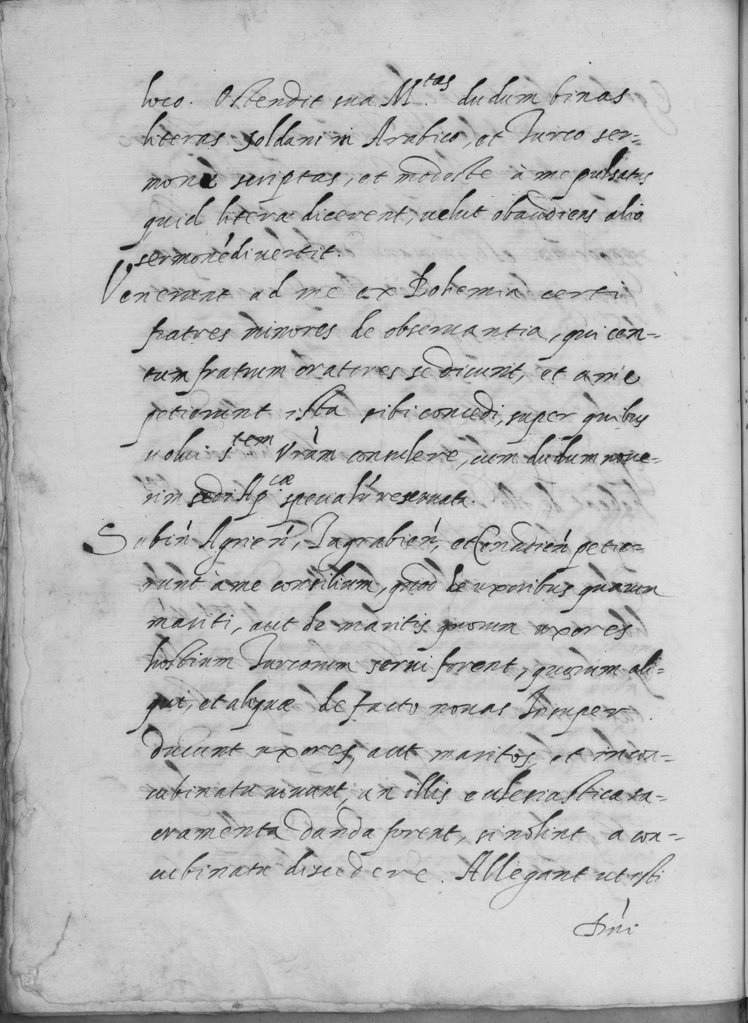 loco. Ostendit sua M.tas dudum binas
literas soldani in Arabico, et Turco ser=
mone scriptas, et modeste à me pulsatus
quid litera dicerent, uelut obaudiens alio
sermonē diuertit.
Venerunt ad me ex Bohemia certi
fratres minores de obseruantia, qui cen=
tum fratrum oratores se dicunt, et a me
petierunt ista sibi concedi, super quibus
uolui s.tem Vrām consulere, cum dudum noue=
rim sedi Ap.cæ specialr̄ reseruata.
Subin̄ Agrien̄, Zagrabien̄, et Cenadien̄ petie=
runt à me consilium, quod de uxoribus quarum
mariti, aut de maritis quorum uxores
hostium Turcorum serui forent, quorum ali=
qui, et aliquæ de facto nouas insuper
ducunt uxores, aut maritos, et in con=
cubinatu uiuunt, an illis ecclesiastica sa=
cramenta danda forent, si nolint a con=
cubinatu discedere. Allegant ut isti